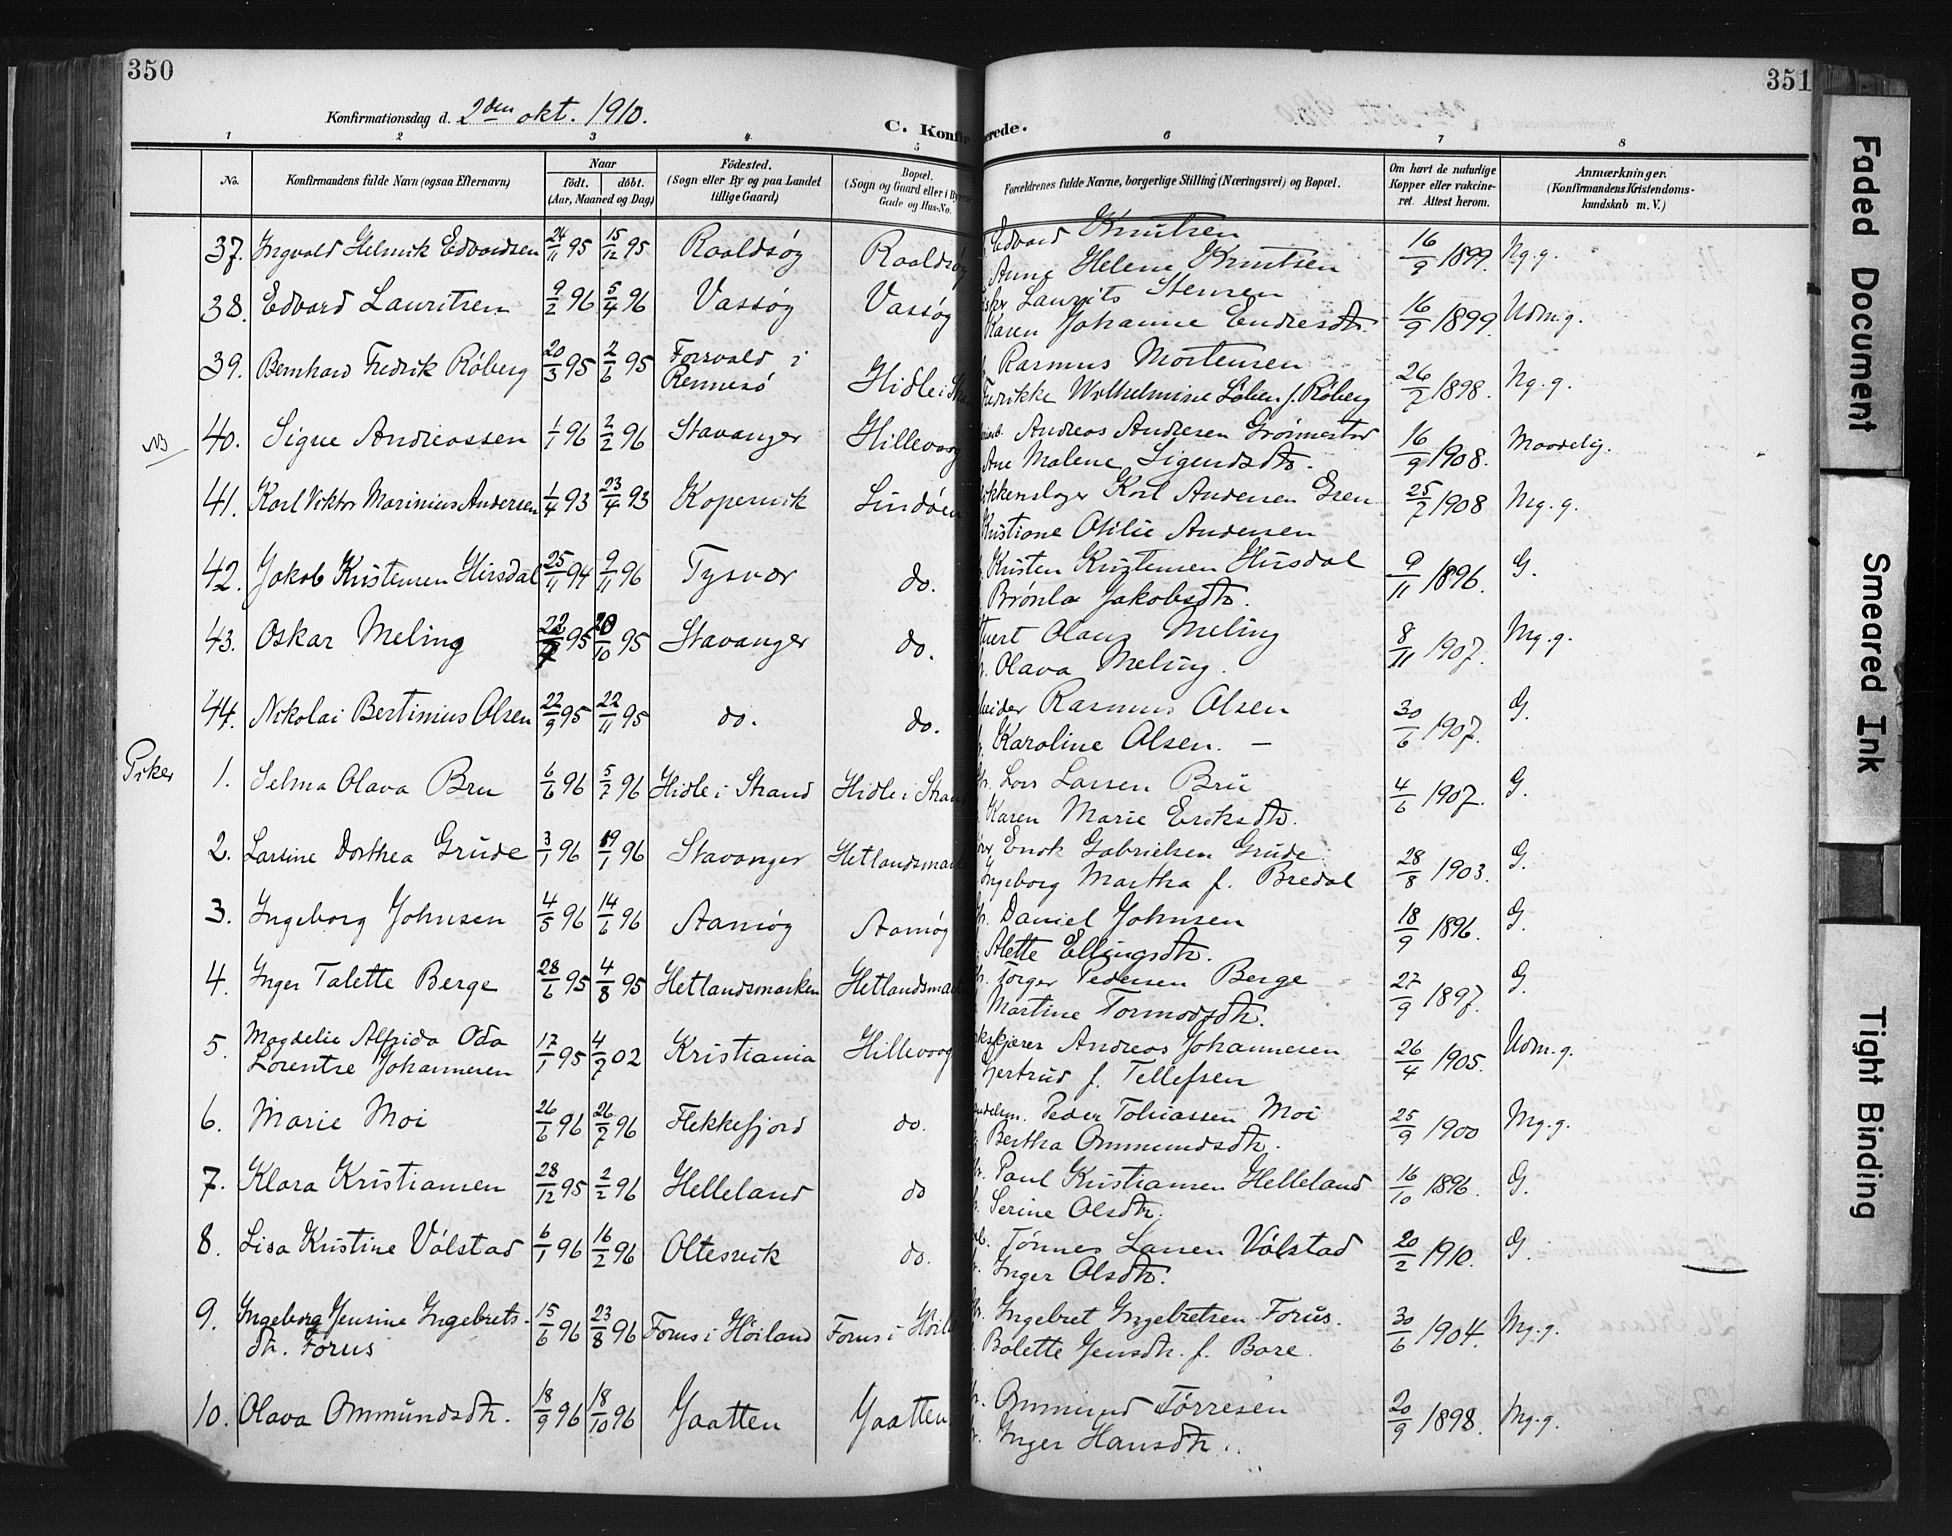 350
351
Konfirmationsdag d. 2den okt. 1910.
C. Konfir
erede.
1 2 3 4 5 6 7 8
No.
Konfirmandens fulde Navn (ogsaa Efternavn)
Naar
födt. döbt.
(Aar, Maaned og Dag)
Födested.
(Sogn eller By og paa Landet
tillige Gaard)
Bopæl.
(Sogn og Gaard eller i Byerne
Gade og Hus-No.
Forældrenes fulde Navne, borgerlige Stilling (Næringsvei) og Bopæl.
Om havt de naturlige
Kopper eller vakcine-
ret. Attest herom.
Anmærkninger.
(Konfirmandens Kristendoms-
kundskab m. V.)
37. Ingvald Helmik Edvardsen 24/11 95 15/12 95 Roaldsøy Roaldsøy Edvard Knutsen 16/9 1899. Mg.g.
Anne Helene Knutsen
38. Edvard Lauritsen 9/2 96 5/4 96 Vassøy Vassøy Laurits Stensen 16/9 1899. Udm.g.
Karen Johanne Endresdtr.
39. Bernhard Fredrik Röberg 20/3 95 2/6 95 Forsvald i Rennesö Hidle i Rasmus Mortensen 26/7 1898. Mg.g.
Fredrikke Wilhelmine f. Röberg
NB 40. Signe Andreassen 1/1 96 2/2 96 Stavanger Hillevaag Andreas Andresen 16/9 1908. Maadelig.
Ane Malene
41. Karl Viktor Marinius Andersen 1/4 93 23/4 93 Kopervik Lindöen Karl Andersen Gren 25/7 1908 Mg.g.
Kristiane Otilie Andersen
42. Jakob Kristensen Hirsdal 25/11 94 9/11 96 Tysvær do. Kristen Kristensen 9/11 1896. G.
Brönla Jakobsdtr.
43. Oskar Meling 95 20/10 95 Stavanger do. Olaus Meling 8/11 1907. Mg.g.
Olava Meling.
44. Nikolai Bertinius Olsen 22/9 95 22/11 95 do. do. Rasmus Olsen 30/6 1907. G.
Karoline Olsen. —
Piker 1. Selma Olava Bru 6/6 96 5/7 96 Hidle i Strand Hidle i Stran Lars Larsen Bru 4/6 1907. G.
Karen Marie Eriksdtr.
2. Larsine Dorthea Grude 3/1 96 19/1 96 Stavanger Hetlandsmark Enok Gabrielsen Grude. 28/8 1903. G.
Ingeborg Martha f. Bredal
3. Ingeborg Johnsen 4/5 96 14/6 96 Aamöy Aamöy Daniel Johnsen 18/9 1896. G.
Alette Ellingsdtr.
4. Inger Talette Berge 28/6 95 4/8 95 Hetlandsmarken Hetlandsmark Torger Pedersen Berge 27/9 1897. G.
Martine Tormodsdtr.
5. Magdelie Alfrida Oda 17/1 95 4/7 02 Kristiania Hillevaag Andreas Johannesen 26/4 1905. Udm.g.
Lorentse Johannesen
Gjertrud f. Tellefsen
6. Marie Moi 26/6 96 26/7 96 Flekkefjord do. Peder Tobiassen Moi 25/9 1900 Mg.g.
Bertha Ommundsdtr.
7. Klara Kristiansen 28/12 95 2/2 96 Helleland do Paul Kristiansen Helleland 16/10 1896. G.
Serine Olsdtr.
8. Lisa Kristine Völstad 6/1 96 16/2 96 Oltesvik do. Tönnes Larsen Völstad 20/2 1910. G.
Inger Olsdtr.
9. Ingeborg Jensine Ingebrets- 15/6 96 23/8 96 Forus i Höiland Forus i Höila Ingebret Ingebretsen Forus. 30/6 1904. Mg.g.
dtr. Forus
Bolette Jensdtr. f. Bore.
10. Olava Ommundsdtr. 18/9 96 18/10 96 Jaatten Jaatten Ommund Törresen 20/9 1898. Mg.g.
Inger Hansdtr.
Faded Document
Smeared Ink
Tight Binding